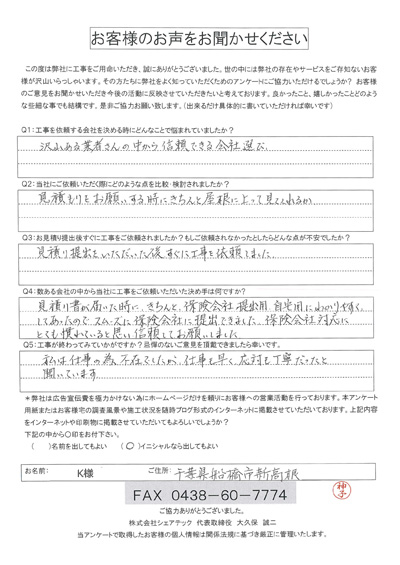 お客様のお声をお聞かせください
この度は弊社に工事をご用命いただき、誠にありがとうございました。世の中には弊社の存在やサービスをご存知ないお客
様が沢山いらっしゃいます。その方たちに弊社をよく知っていただくためのアンケートにご協力いただけるでしょうか？ お客様
のご意見をお聞かせいただき今後の活動に反映させていただきたいと考えております。良かったこと、嬉しかったことどのよう
な些細な事でも結構です。是非ご協力お願い致します。（出来るだけ具体的に書いていただければ幸いです）
Q1：工事を依頼する会社を決める時にどんなことで悩まれていましたか？
沢山ある業者さんの中から信頼できる会社選び
Q2：当社にご依頼いただく際にどのような点を比較・検討されましたか？
見積もりをお願いする時にきちんと屋根に上って見てくれるか
Q3：お見積り提出後すぐに工事をご依頼されましたか？もしご依頼されなかったとしたらどんな点が不安でしたか？
見積り提出をいただいた後すぐに工事を依頼しました
Q4：数ある会社の中から当社に工事をご依頼いただいた決め手は何ですか？
見積り書が届いた時に、きちんと、保険会社提出用自宅用にわかりやすく
してあったので スムーズに保険会社に提出できました。保険会社対応に
とても慣れていると思い信頼してお願いしました
Q5：工事が終わってみていかがですか？忌憚のないご意見を頂戴できましたら幸いです。
私は仕事の為、不在でしたが、仕事も早く、応対も丁寧だったと
聞いています
＊弊社は広告宣伝費を極力かけない為にホームページだけを頼りにお客様への営業活動を行っております。本アンケート
用紙またはお客様宅の調査風景や施工状況を随時ブログ形式のインターネットに掲載させていただいております。上記内容
をインターネットや印刷物に掲載させていただいてもよろしいでしょうか？
下記の中から〇印をお付下さい。
（　）名前を出してもよい　（〇）イニシャルなら出してもよい
お名前：　K様　ご住所：千葉県船橋市新高根
FAX 0438-60-7774
ご協力ありがとうございました。
株式会社シェアテック 代表取締役 大久保 誠二
当アンケートで取得したお客様の個人情報は関係法規に基づき厳正に管理いたします。